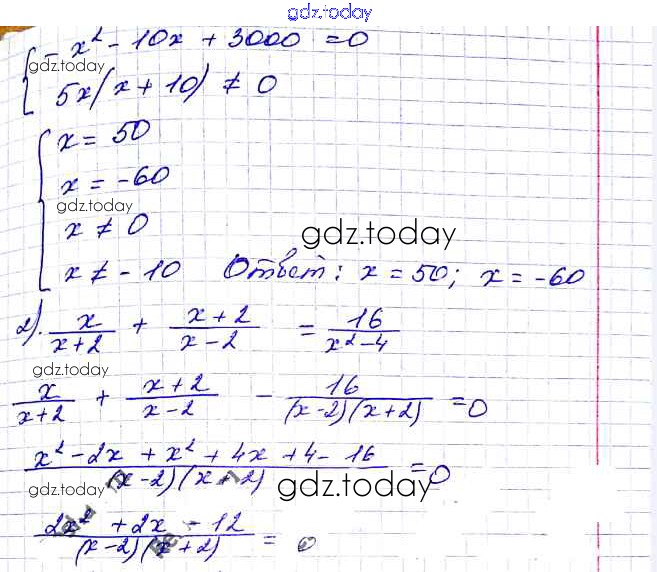 gdz.today
- x² - 10x + 3000 = 0
gdz.today
5x(x + 10) ≠ 0
x = 50
x = -60
gdz.today
x ≠ 0
gdz.today
x ≠ - 10 Ответ: x = 50; x = -60
2). x/(x+2) + (x+2)/(x-2) = 16/(x²-4)
gdz.today
x/(x+2) + (x+2)/(x-2) - 16/((x-2)(x+2)) = 0
(x² - 2x + x² + 4x + 4 - 16)/((x-2)(x+2)) = 0
gdz.today
gdz.today
(2x² + 2x - 12)/((x-2)(x+2)) = 0